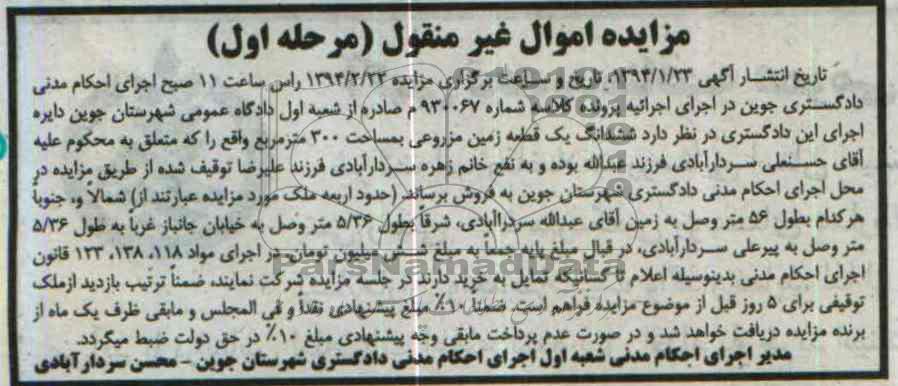 مزایده اموال غیر منقول (مرحله اول)
تاریخ انتشار آگهی ۱۳۹۴/۱/۲۳، تاریخ و ساعت برگزاری مزایده ۱۳۹۴/۲/۲۲ راس ساعت ۱۱ صبح اجرای احکام مدنی
دادگستری جوین در اجرای اجرائیه پرونده کلاسه شماره ۹۳۰۰۶۷ م صادره از شعبه اول دادگاه عمومی شهرستان جوین دایره
اجرای این دادگستری در نظر دارد ششدانگ یک قطعه زمین مزروعی بمساحت ۳۰۰ مترمربع واقع را که متعلق به محکوم علیه
آقای حسنعلی سردارآبادی فرزند عبدالله بوده و به نفع خانم زهره سردارآبادی فرزند علیرضا توقیف شده از طریق مزایده در
محل اجرای احکام مدنی دادگستری شهرستان جوین به فروش برساند. (حدود اربعه ملک مورد مزایده عبارتند از) شمالاً و، جنوباً
هرکدام بطول ۵۶ متر وصل به زمین آقای عبدالله سردراآبادی، شرقاً بطول ۵/۳۶ متر وصل به خیابان جانباز غرباً به طول ۵/۳۶
متر وصل به پیرعلی سردارآبادی، در قبال مبلغ پایه جمعاً به مبلغ شش میلیون تومان در اجرای مواد ۱۱۸، ۱۳۸، ۱۲۳ قانون
اجرای احکام مدنی بدینوسیله اعلام تا کسانیکه تمایل به خرید دارند در جلسه مزایده شرکت نمایند، ضمناً ترتیب بازدید ازملک
توقیفی برای ۵ روز قبل از موضوع مزایده فراهم است. ضمناً ۱۰٪ مبلغ پیشنهادی نقداً و فی المجلس و مابقی ظرف یک ماه از
برنده مزایده دریافت خواهد شد و در صورت عدم پرداخت مابقی وجه پیشنهادی مبلغ ۱۰٪ در حق دولت ضبط میگردد.
مدیر اجرای احکام مدنی شعبه اول اجرای احکام مدنی دادگستری شهرستان جوین - محسن سردارآبادی
ParsNamadData